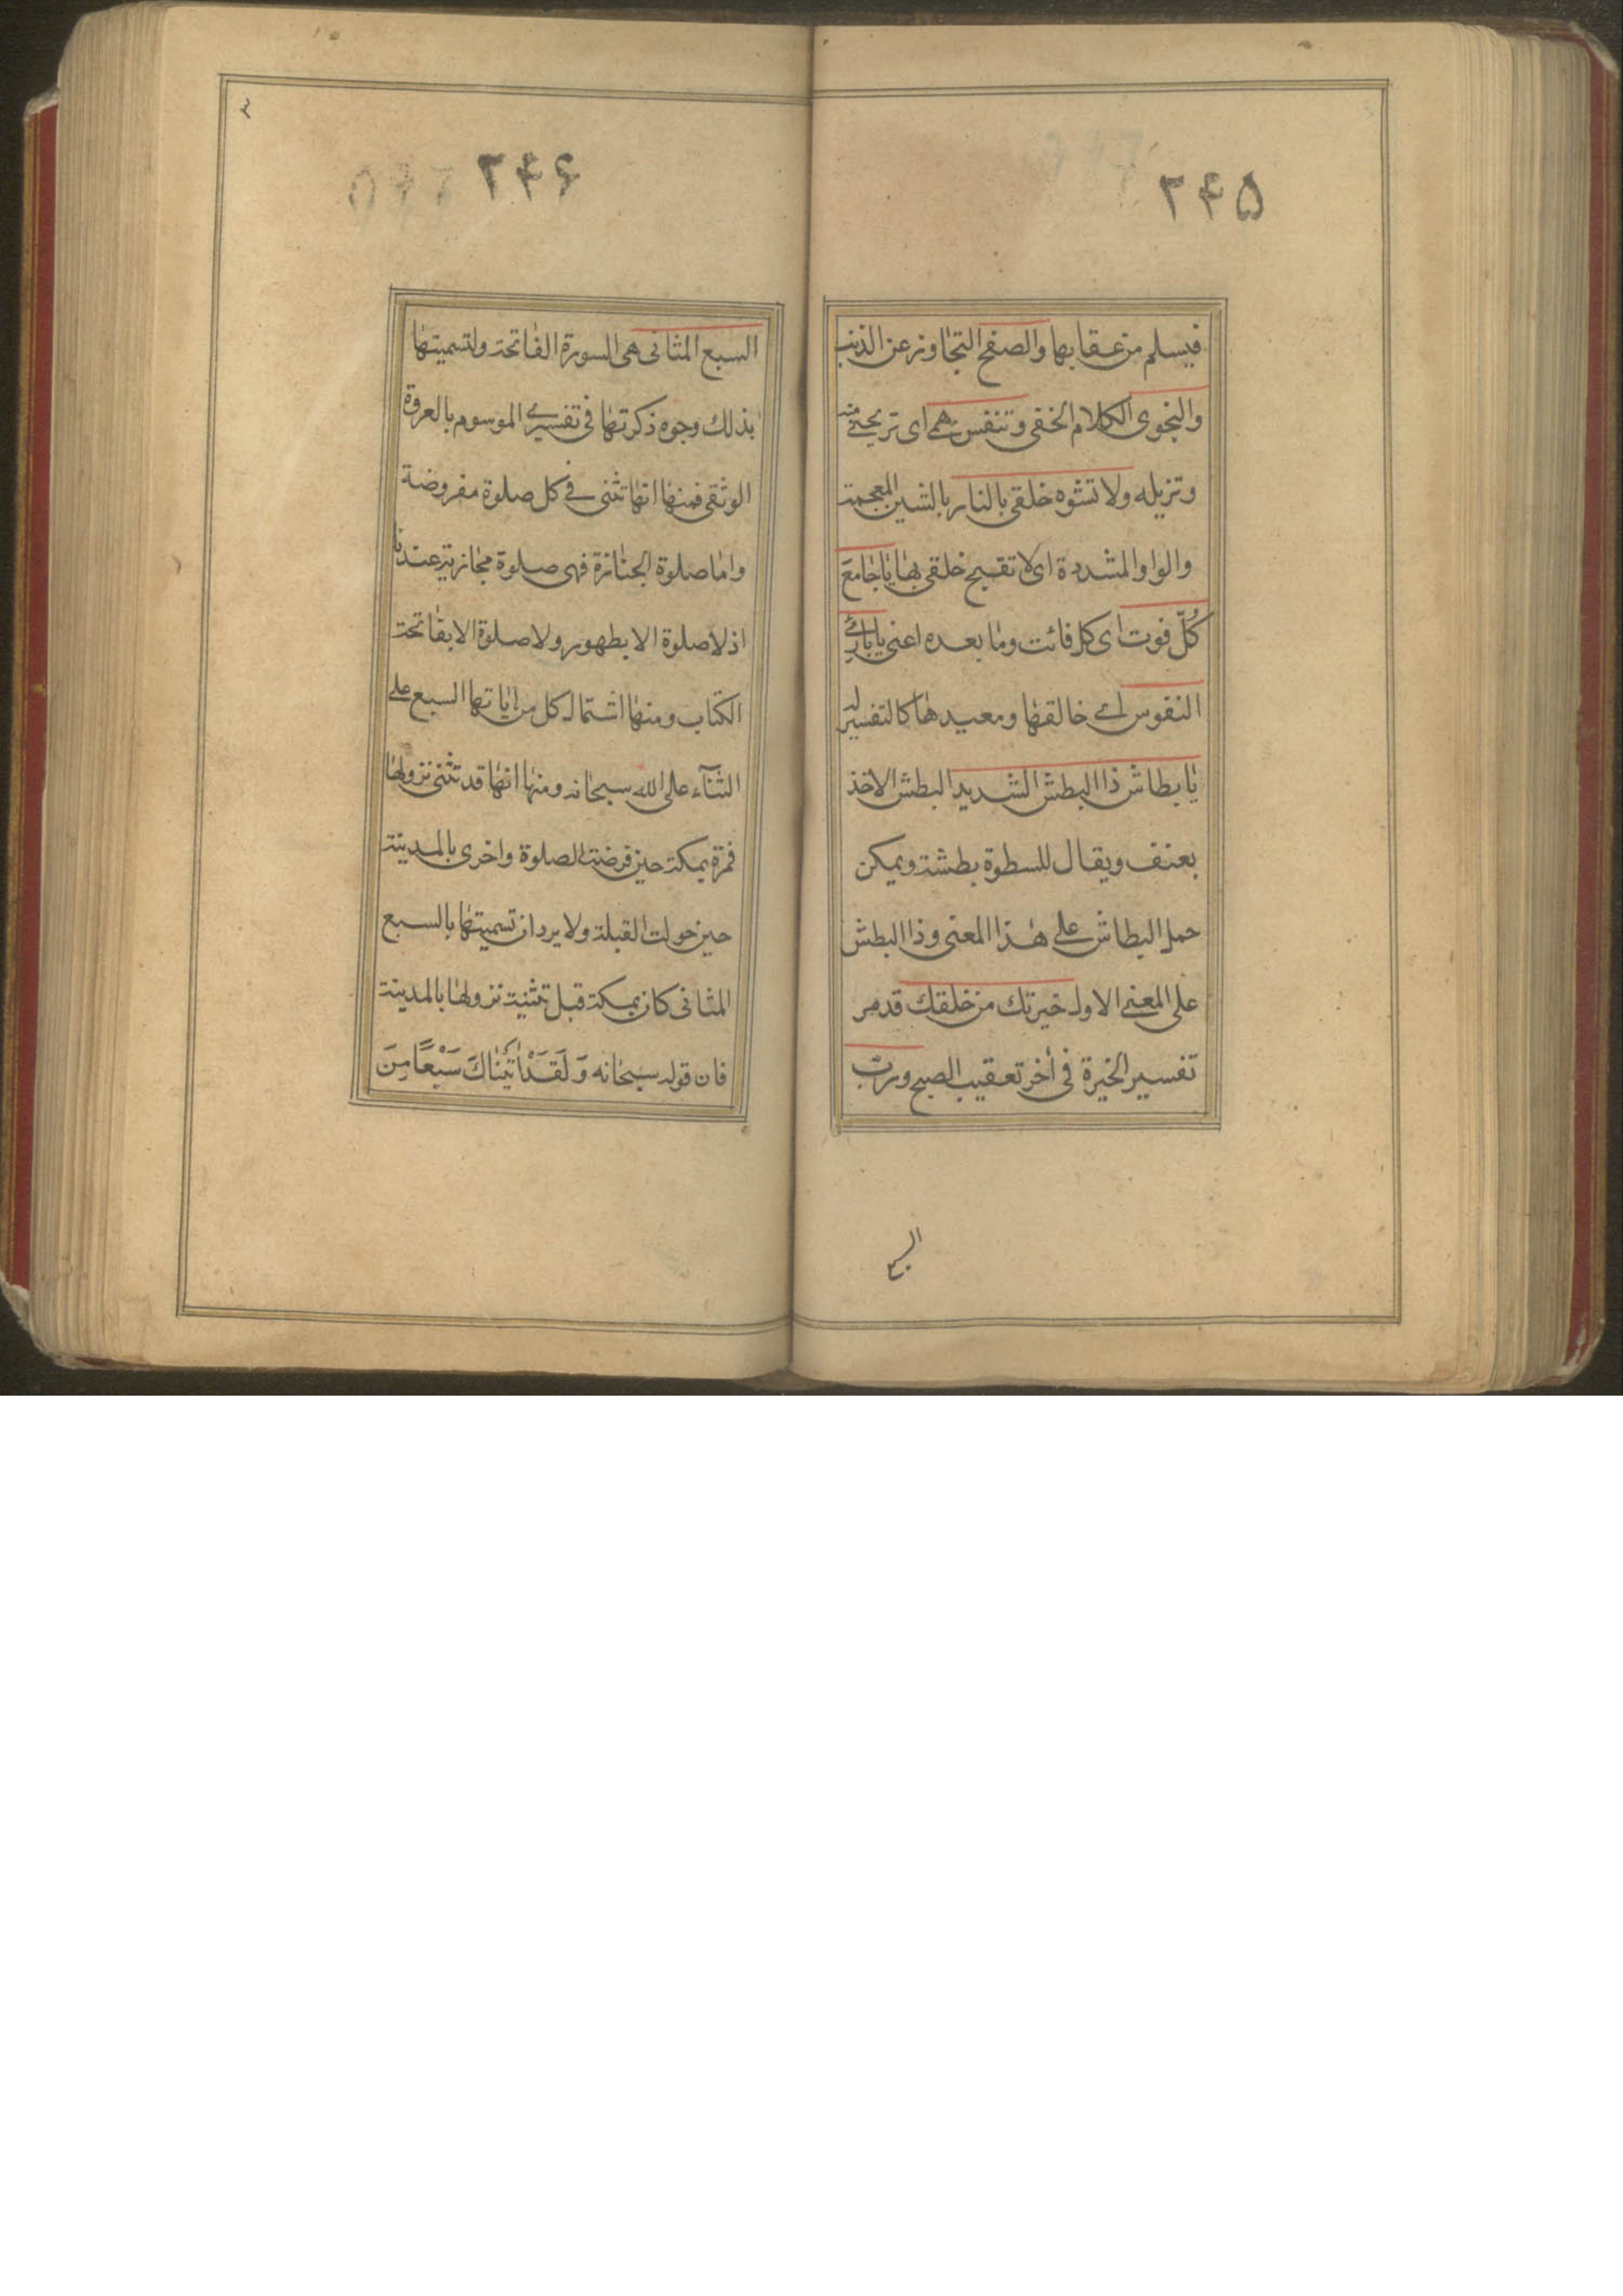 ۲۴۵
فيسلم من عقابها والصفح التجاوز عن الذنب
والنجوى الكلام الخفى وتنفس همى اى تريحنى منه
وتزيله ولا تشوه خلقى بالنار بالشين المعجمة
والواو المشددة اى لا تقبح خلقى بها يا جامع
كُلّ فوت اى كل فائت وما بعده اعنى يا بارئ
النفوس اى خالقها ومعيدها كالتفسير له
يا بطاش ذا البطش الشديد البطش الاخذ
بعنف ويقال للسطوة بطشة ويمكن
حمل البطاش على هذا المعنى وذا البطش
على المعنى الاول خيرتك من خلقك قد مر
تفسير الخيرة فى آخر تعقيب الصبح وربّ
السبع
۲۴۶
السبع المثانى هى السورة الفاتحة ولتسميتها
بذلك وجوه ذكرتها فى تفسيرى الموسوم بالعروة
الوثقى فمنها انها تثنى فى كل صلوة مفروضة
واما صلوة الجنازة فهى صلوة مجازية عندنا
اذ لا صلوة الا بطهور ولا صلوة الا بفاتحة
الكتاب ومنها اشتمال كل من اياتها السبع على
الثنآء على الله سبحانه ومنها انها قد تثنى نزولها
فمرة بمكة حين فرضت الصلوة واخرى بالمدينة
حين حولت القبلة ولا يرد ان تسميتها بالسبع
المثانى كان بمكة قبل تثنية نزولها بالمدينة
فان قوله سبحانه وَلَقَدْ اٰتَيْنَاكَ سَبْعًا مِنَ